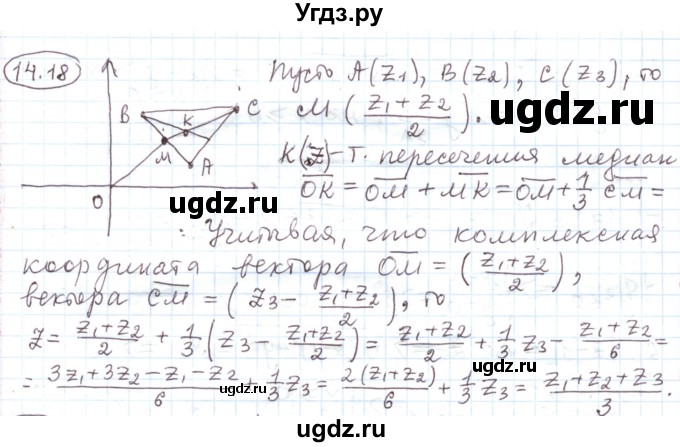 Угдз.ру
14.18
Пусть A(z₁), B(z₂), C(z₃), то
M ( (z₁ + z₂)/2 ).
K(z) – т. пересечения медиан
OK = OM + MK = OM + 1/3 CM =
Учитывая, что комплексная
координата вектора OM = ( (z₁+z₂)/2 ),
вектора CM = ( z₃ – (z₁+z₂)/2 ), то
z = (z₁+z₂)/2 + 1/3 ( z₃ – (z₁+z₂)/2 ) = (z₁+z₂)/2 + 1/3 z₃ – (z₁+z₂)/6 =
= (3z₁+3z₂–z₁–z₂)/6 + 1/3 z₃ = 2(z₁+z₂)/6 + 1/3 z₃ = (z₁+z₂+z₃)/3.
B
K
C
M
A
O
ugdz.ru
ugdz.ru
ugdz.ru
ugdz.ru